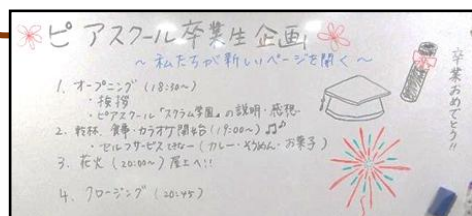 ピアスクール卒業生企画
～私たちが新しいページを開く～
1. オープニング (18:30～)
・挨拶
・ピアスクール「スクラム学園」の説明・感想
2. 乾杯、食事・カラオケ開始 (19:00～)
・セルフサービス (カレー・そうめん・お菓子)
3. 花火 (20:00～) 屋上へ!!
4. クロージング (20:45)
卒業おめでとう!!